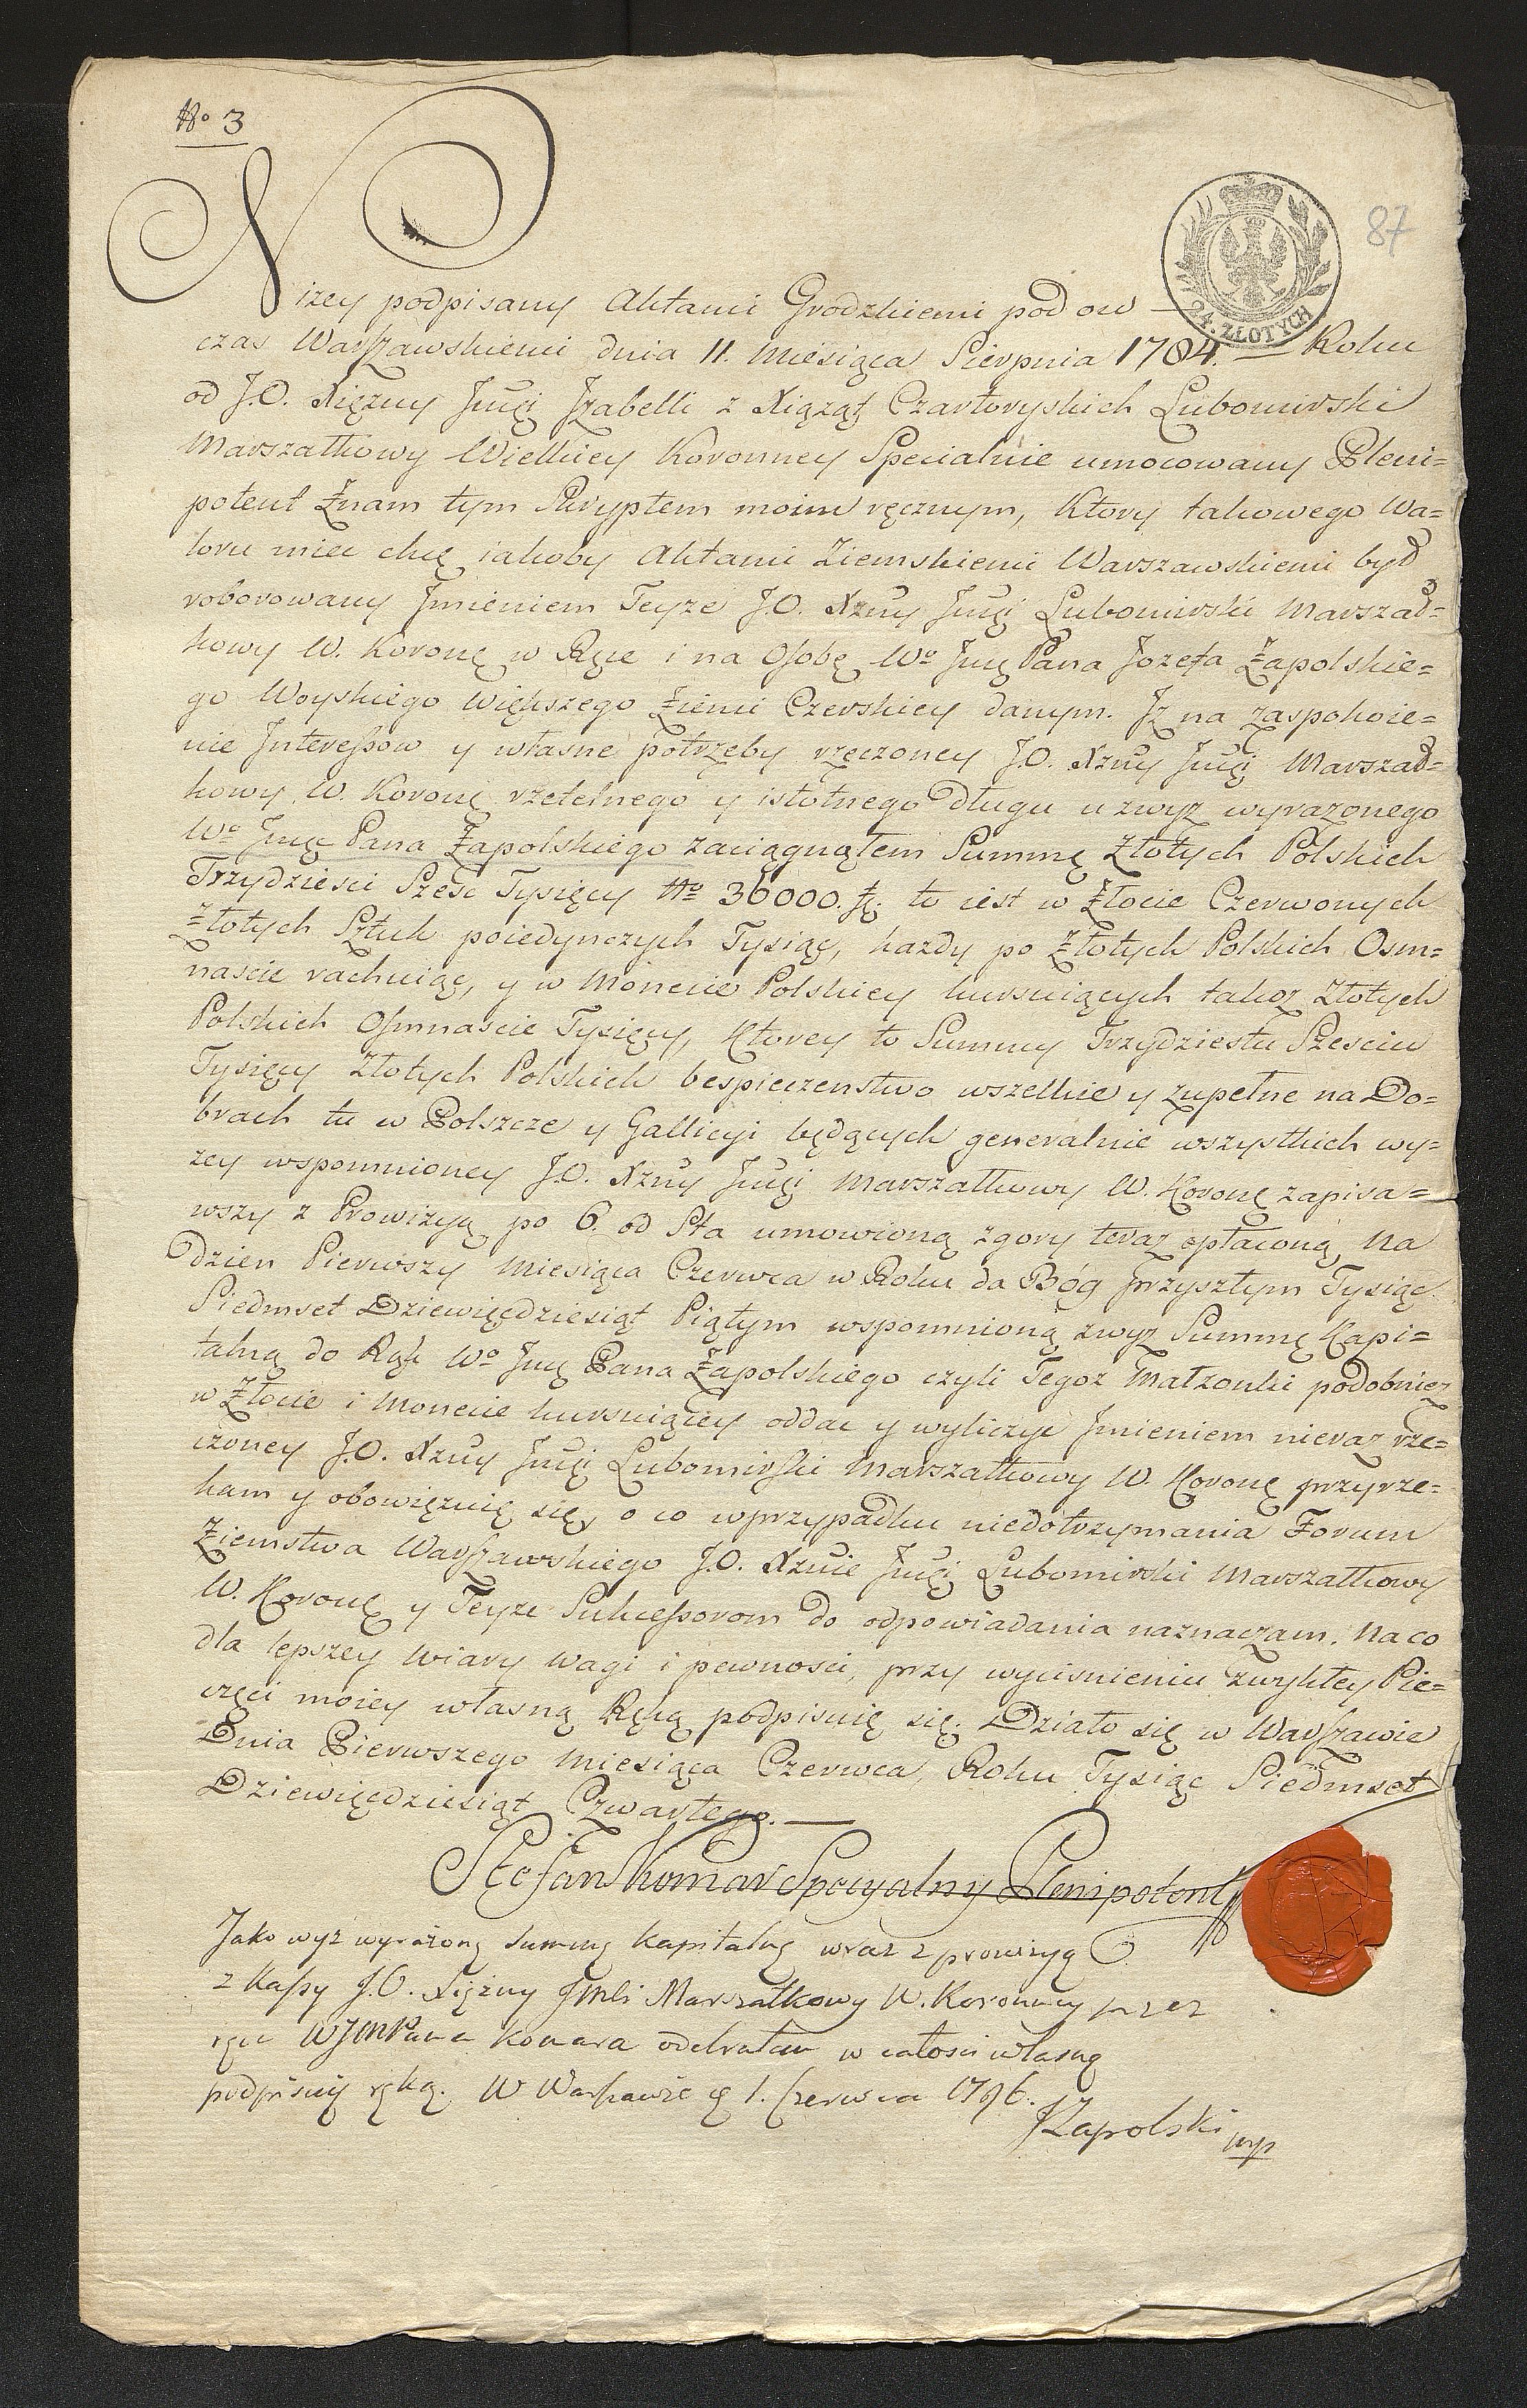 No 3
87
24. ZŁOTYCH
Niżey podpisany Aktami Grodzkiemi pod ow —
czas Warszawskiemi dnia 11. Miesiąca Sierpnia 1784. — Roku
od J.O. Xiężny Jmci Izabelli z Xiążąt Czartoryskich Lubomirski
Marszałkowy Wielkiey Koronney Specialnie umocowany Pleni=
potent Znam tym Skryptem moim ręcznym, Ktory takowego Wa=
loru miec chcę iakoby Aktami Ziemskiemi Warszawskiemi był
roborowany Jmieniem Teyże J.O. Xżny Jmci Lubomirski Marszał=
kowy W. Koronę w Ręce i na Osobę Wo Jmę Pana Jozefa Zapolskie=
go Woyskiego Większego Ziemi Czerskiey danym. Jż na zaspokoie=
nie Jnteressow y własne potrzeby rzeczoney J.O. Xżny Jmci Marszał=
kowy W. Koronę rzetelnego y istotnego Długu u zwyż wyrażonego
Wo Jmę Pana Zapolskiego zaciągnąłem Summę Złotych Polskich
Trzydziesci Szesc Tysięcy No 36000. to iest w Złocie Czerwonych
Złotych Sztuk poiedynczych Tysiąc, każdy po Złotych Polskich Osm=
nascie rachuiąc, y w Monecie Polskiey kursuiących takoż Złotych
Polskich Osmnascie Tysięcy, Ktorey to Summy Trzydziestu Szesciu
Tysięcy Złotych Polskich bespieczenstwo wszelkie y zupełne na Do=
brach tu w Polszcze y Gallicyi będących generalnie wszystkich wy=
żey wspomnioney J.O. Xżny Jmci Marszałkowy W. Koronę zapisa=
wszy z Prowizyą po 6. od Sta umowioną zgory teraz opłaconą, Na
Dzien Pierwszy Miesiąca Czerwca w Roku da Bóg przyszłym Tysiąc
Siedmset Dziewięcdziesiąt Piątym wspomnioną zwyż Summę Kapi=
talną do Rąk Wo Jmę Pana Zapolskiego czyli Tegoż Małżonki podobnież
w Złocie i Monecie kursuiącey oddac y wyliczyc Jmieniem nieraz rze=
czoney J.O. Xżny Jmci Lubomirski Marszałkowy W. Koronę przyrze=
kam y obowięzuię się, o co wprzypadku niedotrzymania Forum
Ziemstwa Warszawskiego J.O. Xżnie Jmci Lubomirski Marszałkowy
W. Koronę y Teyże Sukcessorom do odpowiadania naznaczam. Na co
dla lepszey Wiary Wagi i pewnosci, przy wycisnieniu zwykłey Pie=
częci moiey własną Ręką podpisuię się. Działo się w Warszawie
Dnia Pierwszego Miesiąca Czerwca, Roku Tysiąc Siedmset
Dziewięcdziesiąt Czwartego. —
Stefan Komar Specyalny Plenipotent
Jako wyż wyrażoną summę kapitalną wraz z prowizyą
z Kassy J.O. Xiężny JMci Marszałkowy W. Koronney przez
ręce WJMPana Komara odebrałem w całosci własną
podpisuię ręką. W Warszawie d 1. Czerwca 1796.
JZapolski mp